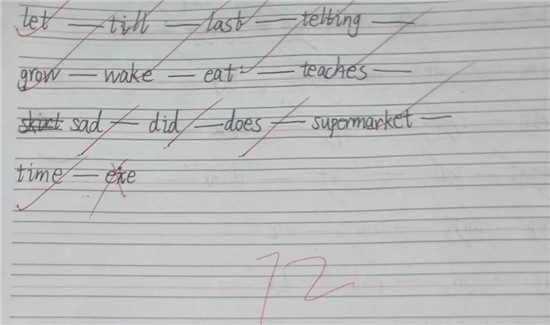 let — till — last — telling —
grow — wake — eat — teaches —
skirt sad — did — does — supermarket —
time — exe
12